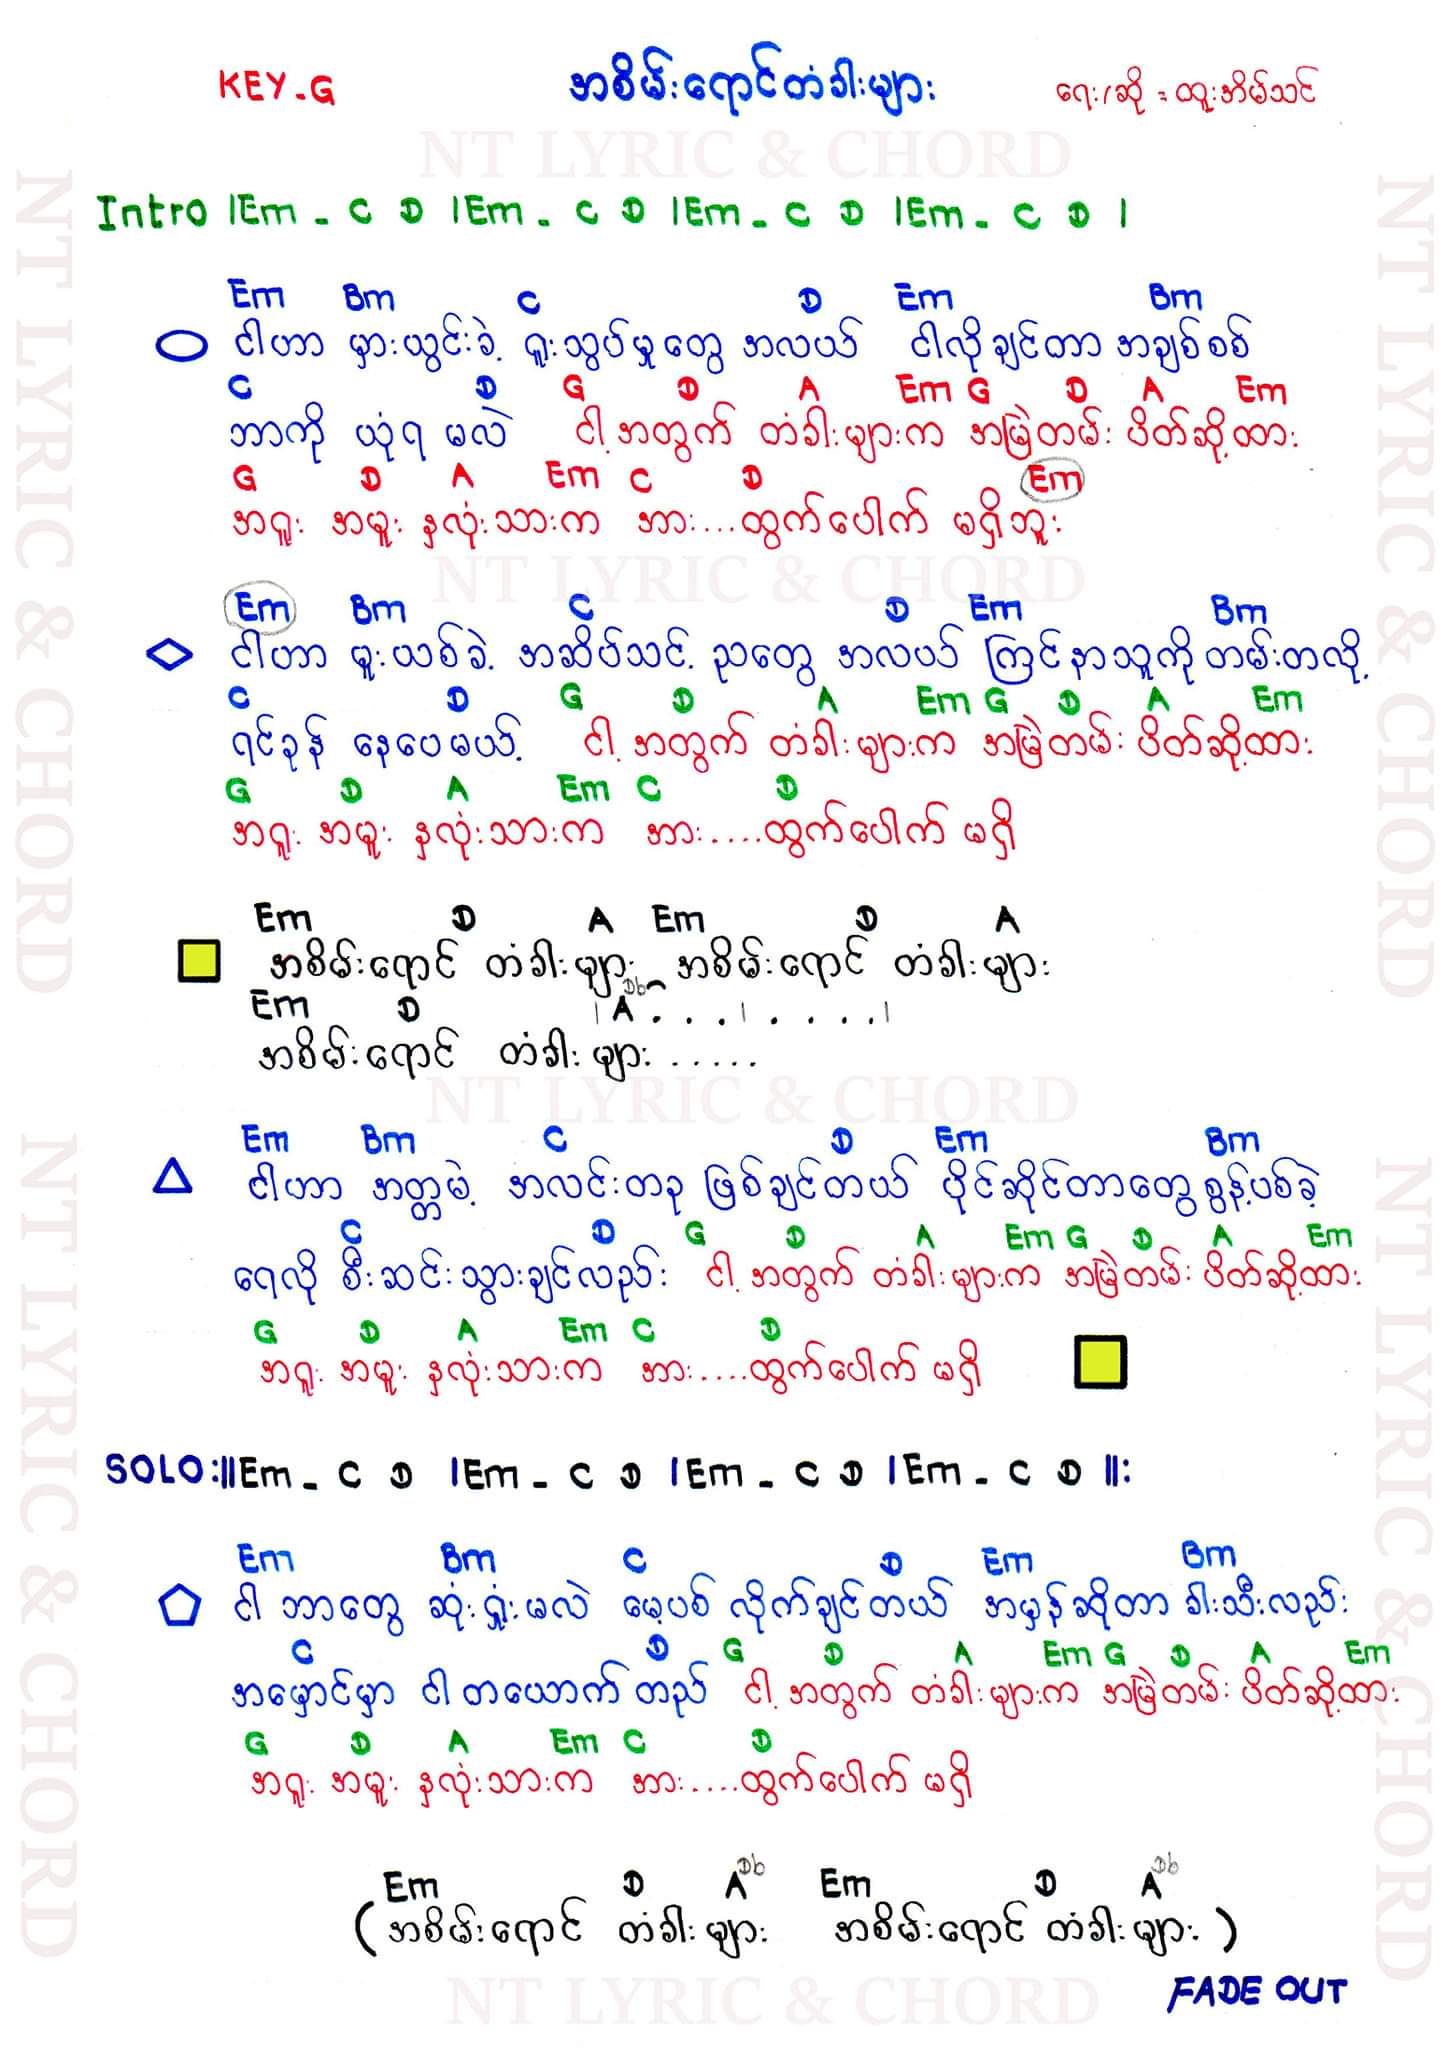 KEY-G
အစိမ်းရောင်တံခါးများ
ရေး/ဆို = ထူးအိမ်သင်
NT LYRIC & CHORD
Intro |Em - C D |Em - C D |Em - C D |Em - C D |
Em Bm C D Em Bm
ငါဟာ မှားယွင်းခဲ့ ရှုးသွပ်မှုတွေ အလယ် ငါလိုချင်တာ အချစ်စစ်
C D G D A Em G D A Em
ဘာကို ယုံရ မလဲ ငါ့အတွက် တံခါးများက အမြဲတမ်း ပိတ်ဆို့ထား
G D A Em C D Em
အရူး အမူး နှလုံးသားက အား...ထွက်ပေါက် မရှိဘူး
NT LYRIC & CHORD
Em Bm C D Em Bm
ငါဟာ မူးယစ်ခဲ့ အဆိပ်သင့် ညတွေ အလယ် ကြင်နာသူကို တမ်းတလို့
C D G D A Em G D A Em
ရင်ခုန် နေပေမယ့် ငါ့အတွက် တံခါးများက အမြဲတမ်း ပိတ်ဆို့ထား
G D A Em C D
အရူး အမူး နှလုံးသားက အား....ထွက်ပေါက် မရှိ
Em D A Em D A
အစိမ်းရောင် တံခါးများ အစိမ်းရောင် တံခါးများ
Em D |A Db . . . | . . . . |
အစိမ်းရောင် တံခါးများ .....
NT LYRIC & CHORD
Em Bm C D Em Bm
ငါဟာ အတ္တမဲ့ အလင်းတခု ဖြစ်ချင်တယ် ပိုင်ဆိုင်တာတွေ စွန့်ပစ်ခဲ့
C D G D A Em G D A Em
ရေလို စီးဆင်းသွားချင်လည်း ငါ့အတွက် တံခါးများက အမြဲတမ်း ပိတ်ဆို့ထား
G D A Em C D
အရူး အမူး နှလုံးသားက အား....ထွက်ပေါက် မရှိ
SOLO:||Em - C D |Em - C D |Em - C D |Em - C D ||:
Em Bm C D Em Bm
ငါ ဘာတွေ ဆုံးရှုံးမလဲ မေ့ပစ် လိုက်ချင်တယ် အမှန်ဆိုတာ ခါးသီးလည်း
C D G D A Em G D A Em
အမှောင်မှာ ငါ တယောက် တည် ငါ့အတွက် တံခါးများက အမြဲတမ်း ပိတ်ဆို့ထား
G D A Em C D
အရူး အမူး နှလုံးသားက အား....ထွက်ပေါက် မရှိ
Em D A Db Em D A Db
(အစိမ်းရောင် တံခါးများ အစိမ်းရောင် တံခါးများ)
FADE OUT
NT LYRIC & CHORD
NT LYRIC & CHORD
NT LYRIC & CHORD
NT LYRIC & CHORD
NT LYRIC & CHORD